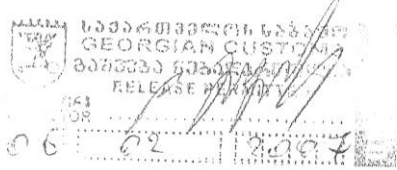 საქართველოს საბაჟო
GEORGIAN CUSTOMS
გაშვება ნებადართულია
RELEASE PERMITTED
06 02 2007